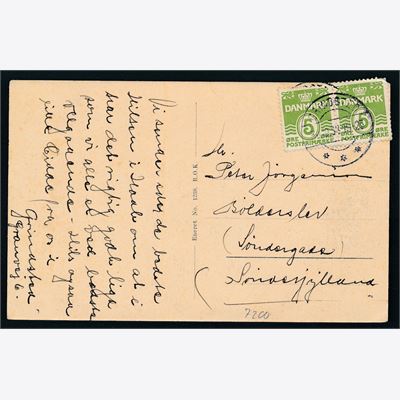 Vi sender dig de bedste
Hilsen i Haab om at i
har det rigtig godt lige
som vi alle er ved bedste
velgaaende
fra os i
Grindsted
Granvej 6.
Eneret No. 1238. R.O.K
DANMARK
5
ØRE
POSTFRIMÆRKE
DANMARK
5
ØRE
POSTFRIMÆRKE
Hr.
Peter Jørgensen
Bolderslev
(Søndergade)
(Sønderjylland)
7200